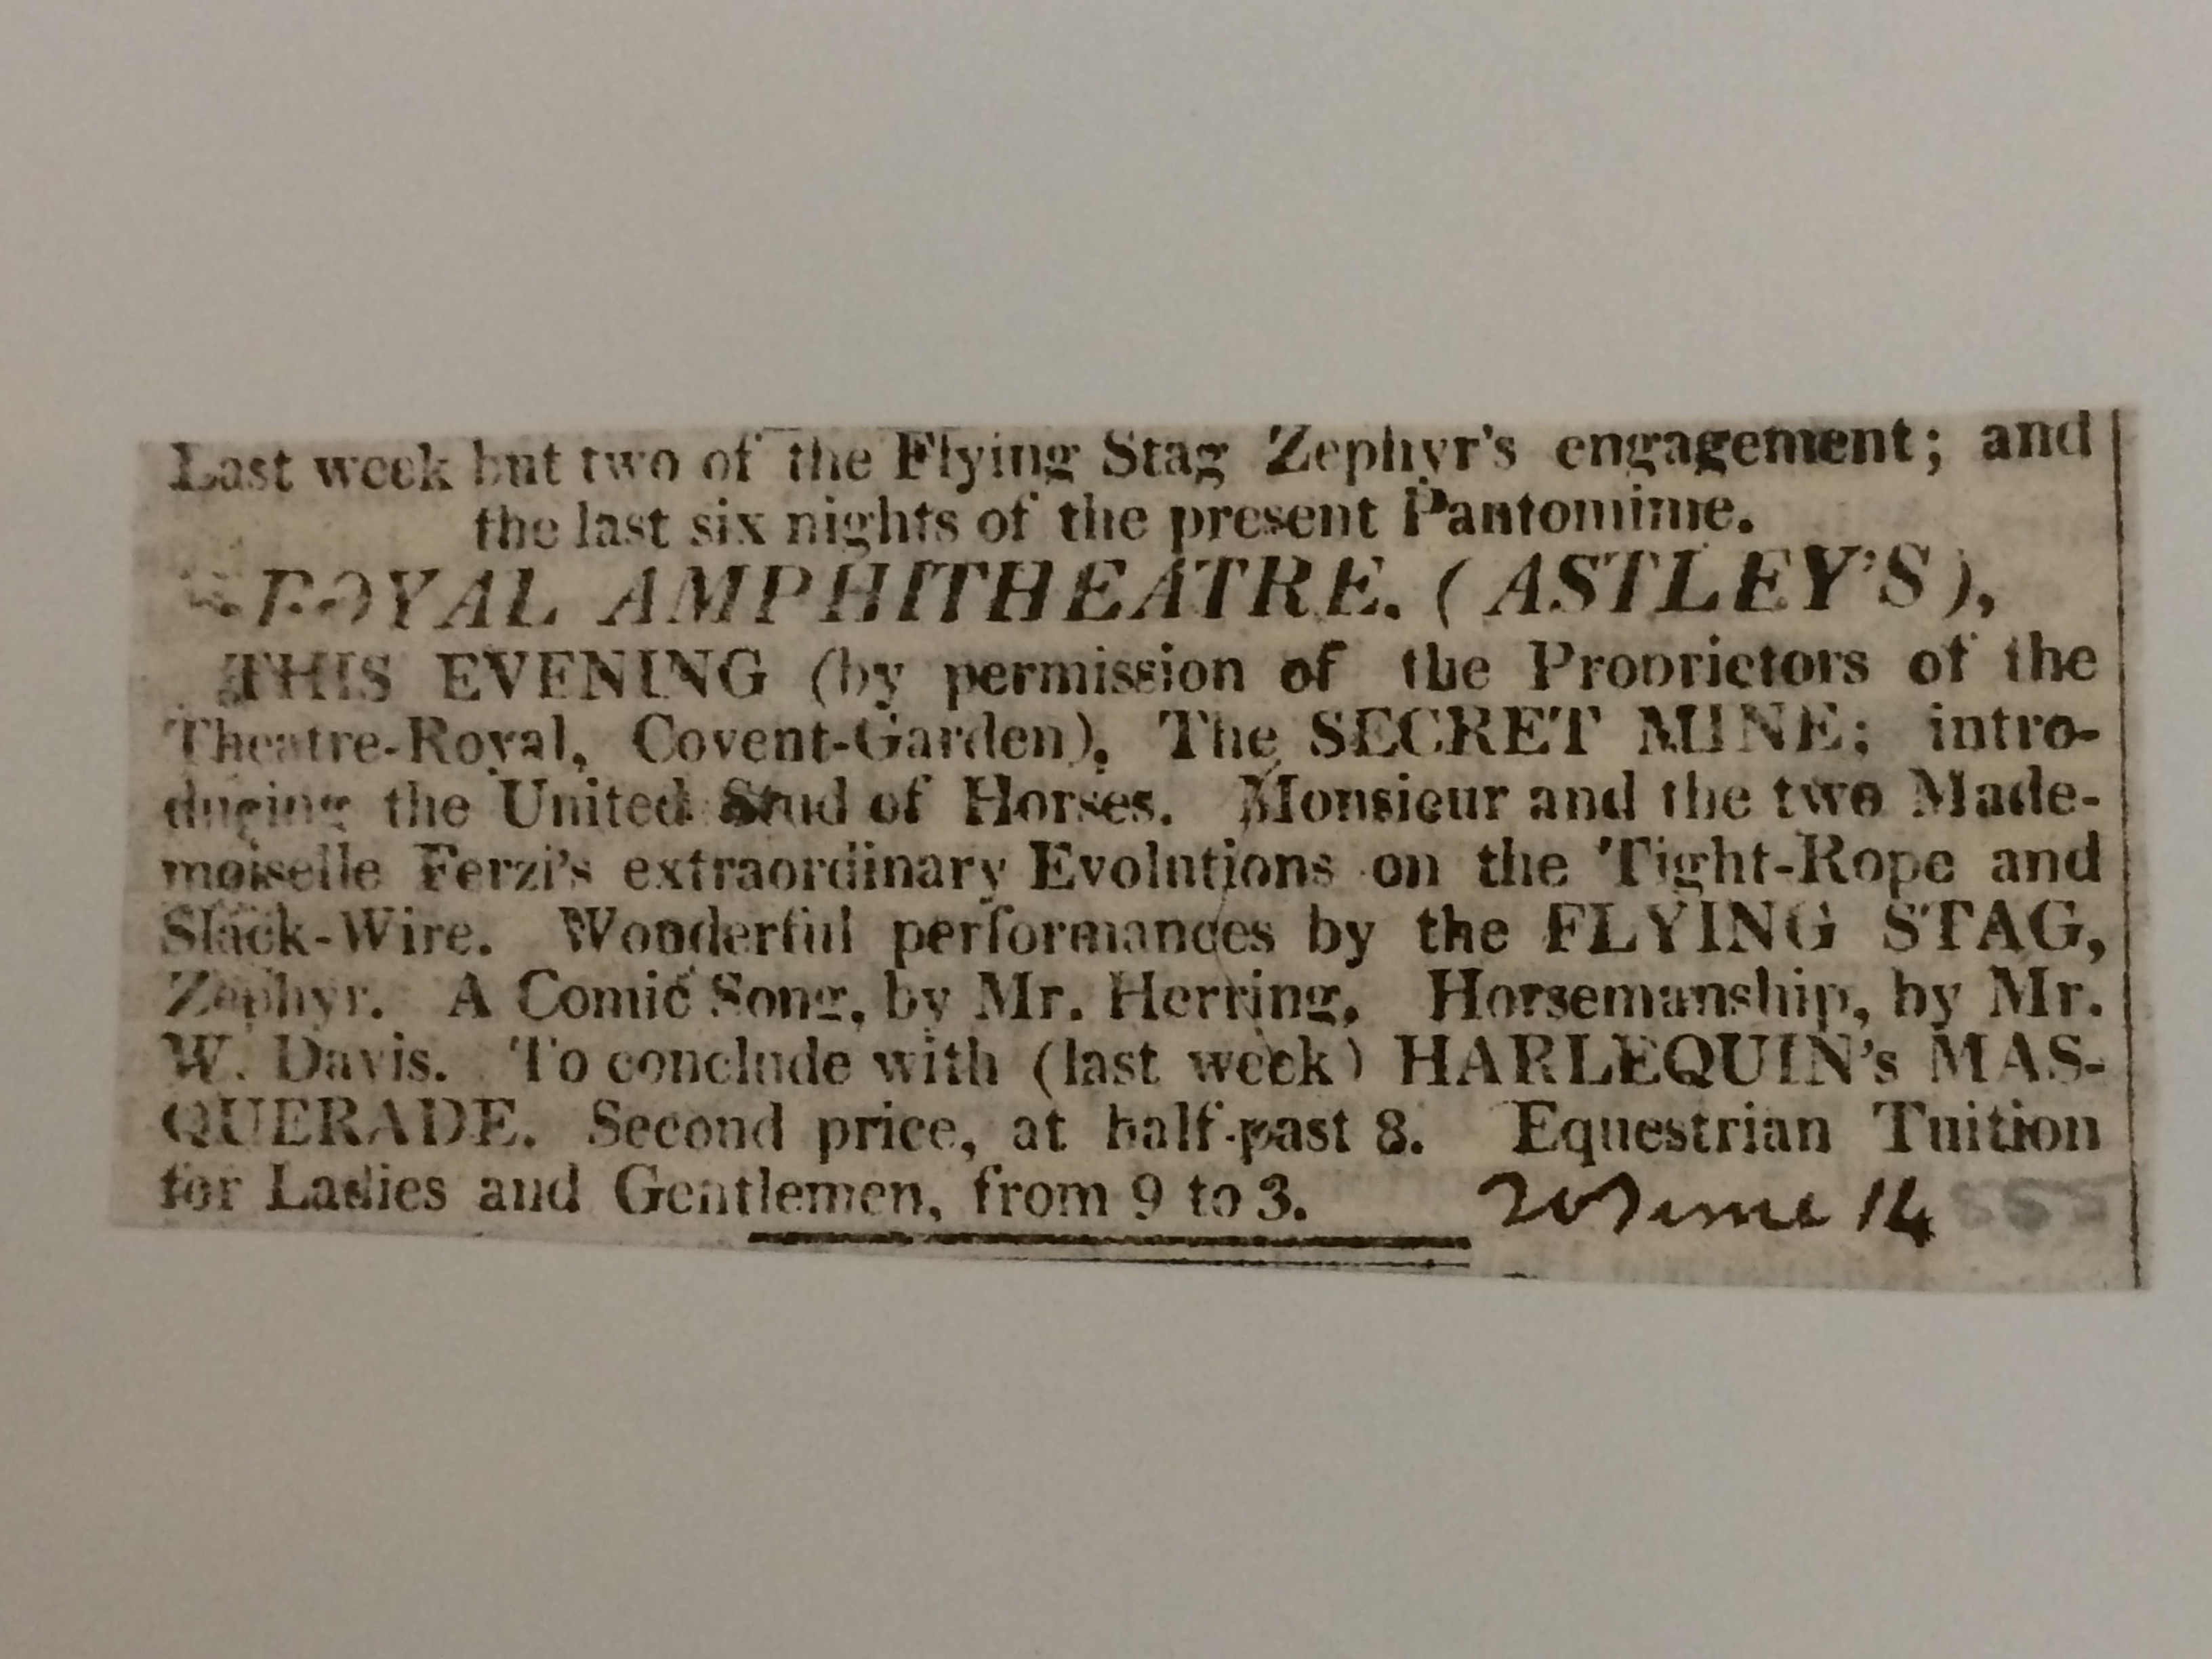 Last week but two of the Flying Stag Zephyr's engagement; and
the last six nights of the present Pantomime.
ROYAL AMPHITHEATRE. (ASTLEY'S),
THIS EVENING (by permission of the Proprietors of the
Theatre-Royal, Covent-Garden), The SECRET MINE; intro-
ducing the United Stud of Horses. Monsieur and the two Made-
moiselle Ferzi's extraordinary Evolutions on the Tight-Rope and
Slack-Wire. Wonderful performances by the FLYING STAG,
Zephyr. A Comic Song, by Mr. Herring. Horsemanship, by Mr.
W. Davis. To conclude with (last week) HARLEQUIN's MAS-
QUERADE. Second price, at half-past 8. Equestrian Tuition
for Ladies and Gentlemen, from 9 to 3. 14